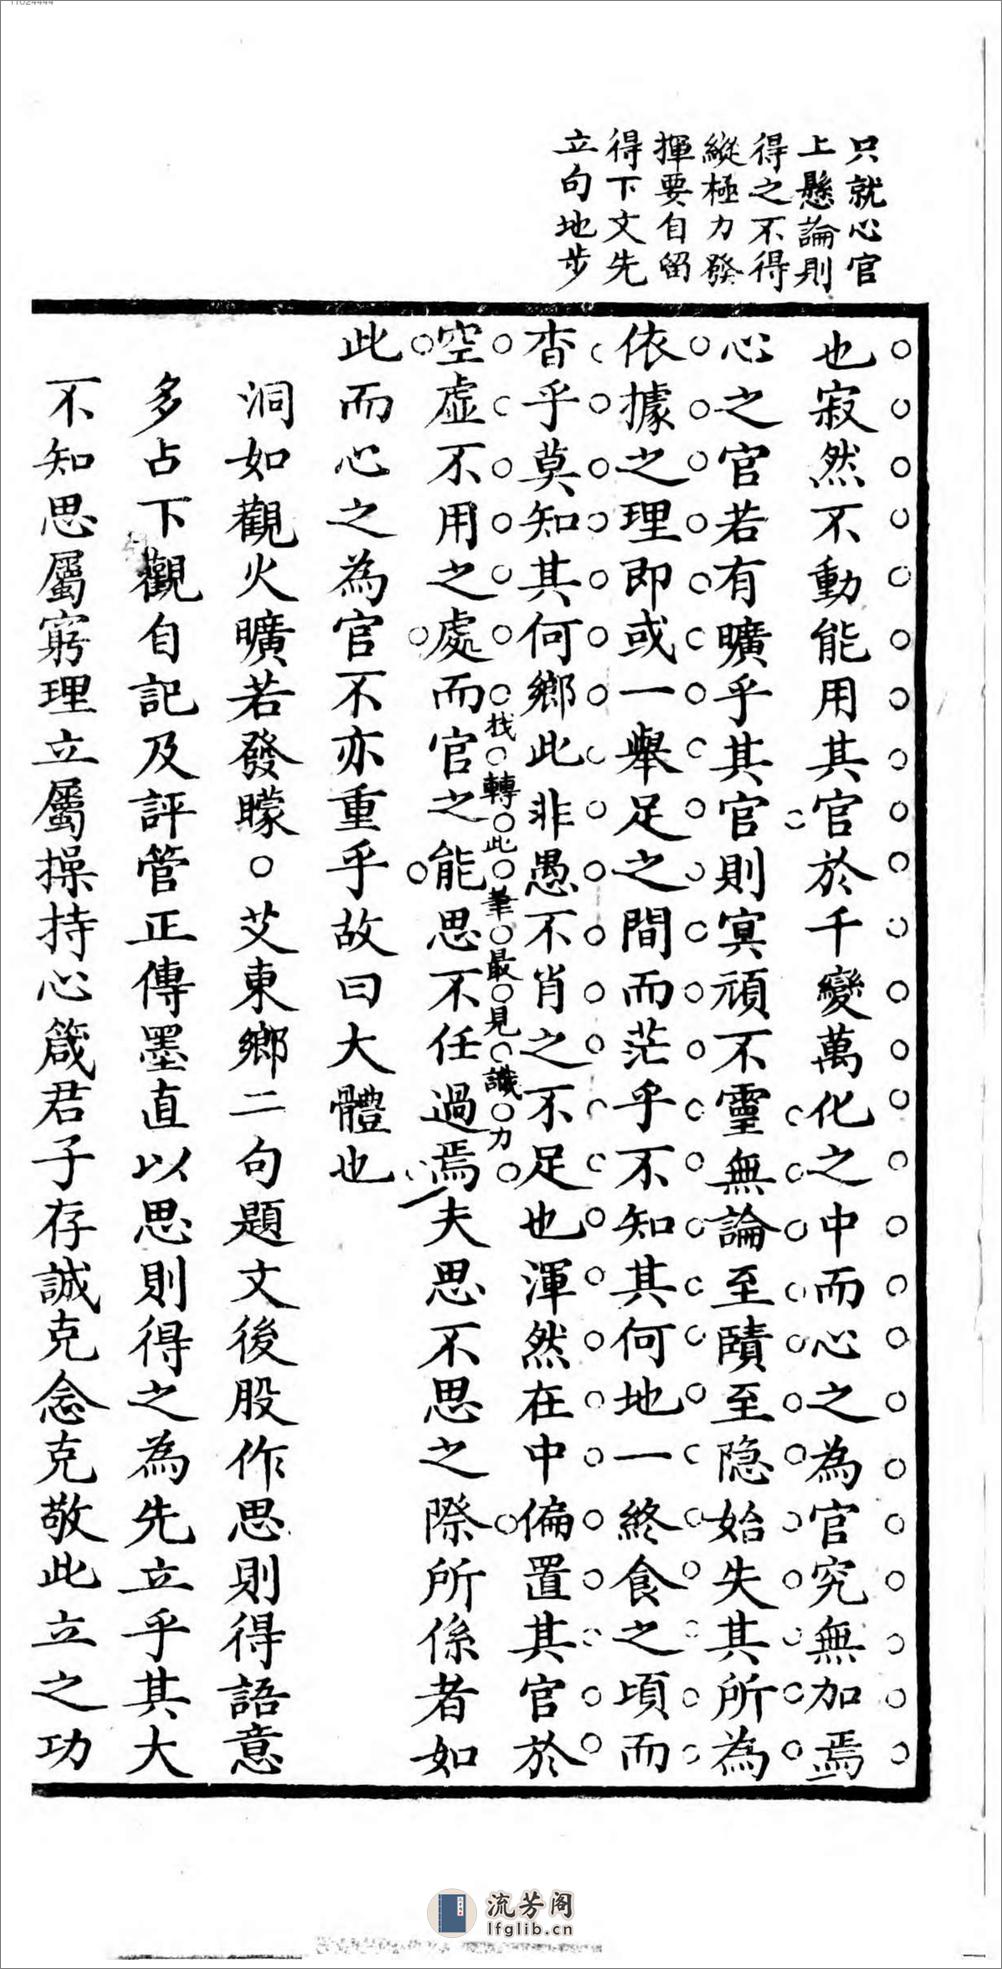 11024444
只就心官
上懸論則
得之不得
縱極力發
揮要自留
得下文先
立句地步
也寂然不動能用其官於千變萬化之中而心之為官究無加焉
心之官若有曠乎其官則冥頑不靈無論至賾至隐始失其所為
依據之理即或一舉足之間而茫乎不知其何地一終食之頃而
杳乎莫知其何鄉此非愚不肖之不足也渾然在中偏置其官於
找轉此筆最見識力
空虛不用之處而官之能思不任過焉夫思不思之際所係者如
此而心之為官不亦重乎故曰大體也
洞如觀火曠若發矇○艾東鄉二句題文後股作思則得語意
多占下觀自記及評管正傳墨直以思則得之為先立乎其大
不知思屬窮理立屬操持心箴君子存誠克念克敬此立之功
流芳阁
lfglib.cn